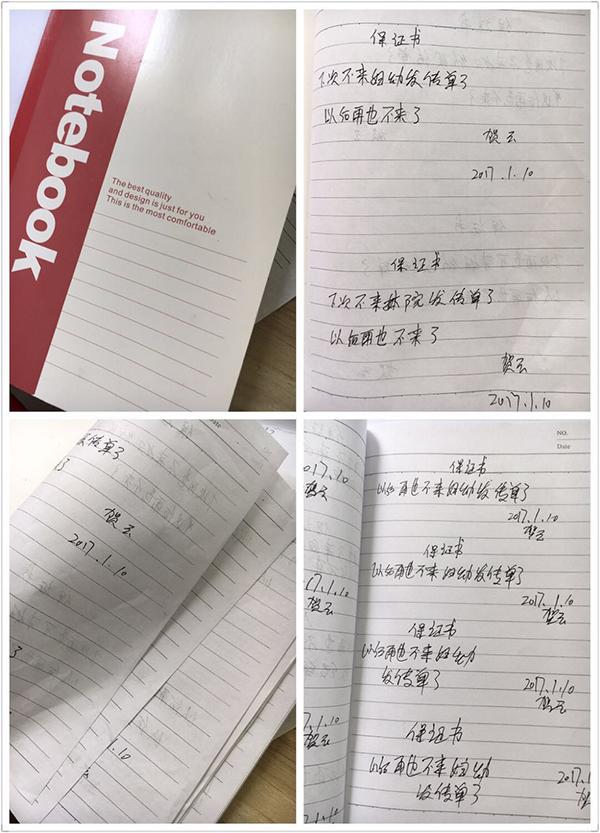 Notebook
The best quality
and design is just for you
This is the most comfortable
保证书
下次不来妇幼发传单了
以后再也不来了
贺云
2017.1.10
保证书
下次不来林院发传单了
以后再也不来了
贺云
2017.1.10
发传单了
贺云
2017.1.10
.10
017.1.10
贺云
17.1.10
贺云
7.1.10
贺云
NO.
Date
保证书
以后再也不来妇幼发传单了
2017.1.10
贺云
保证书
以后再也不来妇幼发传单了
2017.1.10
贺云
保证书
以后再也不来妇幼
发传单了
2017.1.10
贺云
保证书
以后再也不来妇幼
发传单了
2017.1